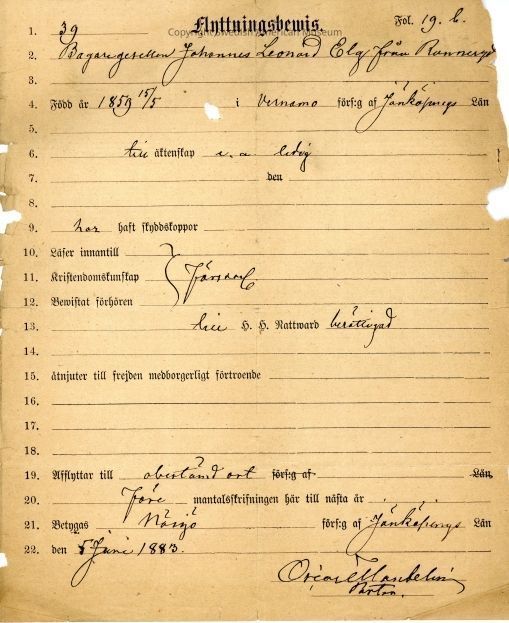 1. 39 Flyttningsbewis. Fol. 19. b.
Copyright Swedish American Museum
2. Bagaregesellen Johannes Leonard Elg från Runneryd
3.
4. Född år 1859 15/5 i Vernamo förs:g af Jönköpings Län
5.
6. till äktenskap s. a. ledig
7. den
8.
9. har haft skyddskoppor
10. Läser innantill
11. Kristendomskunskap försvarl
12. Bewistat förhören
13. till H. H. Nattward berättigad
14.
15. åtnjuter till frejden medborgerligt förtroende
16.
17.
18.
19. Afflyttar till obestämd ort förs:g af Län
20. före mantalskrifningen här till nästa år
21. Betygas Nässjö förs:g af Jönköpings Län
22. den 5 Juni 1883.
Oscar Mandelin
Pastor.